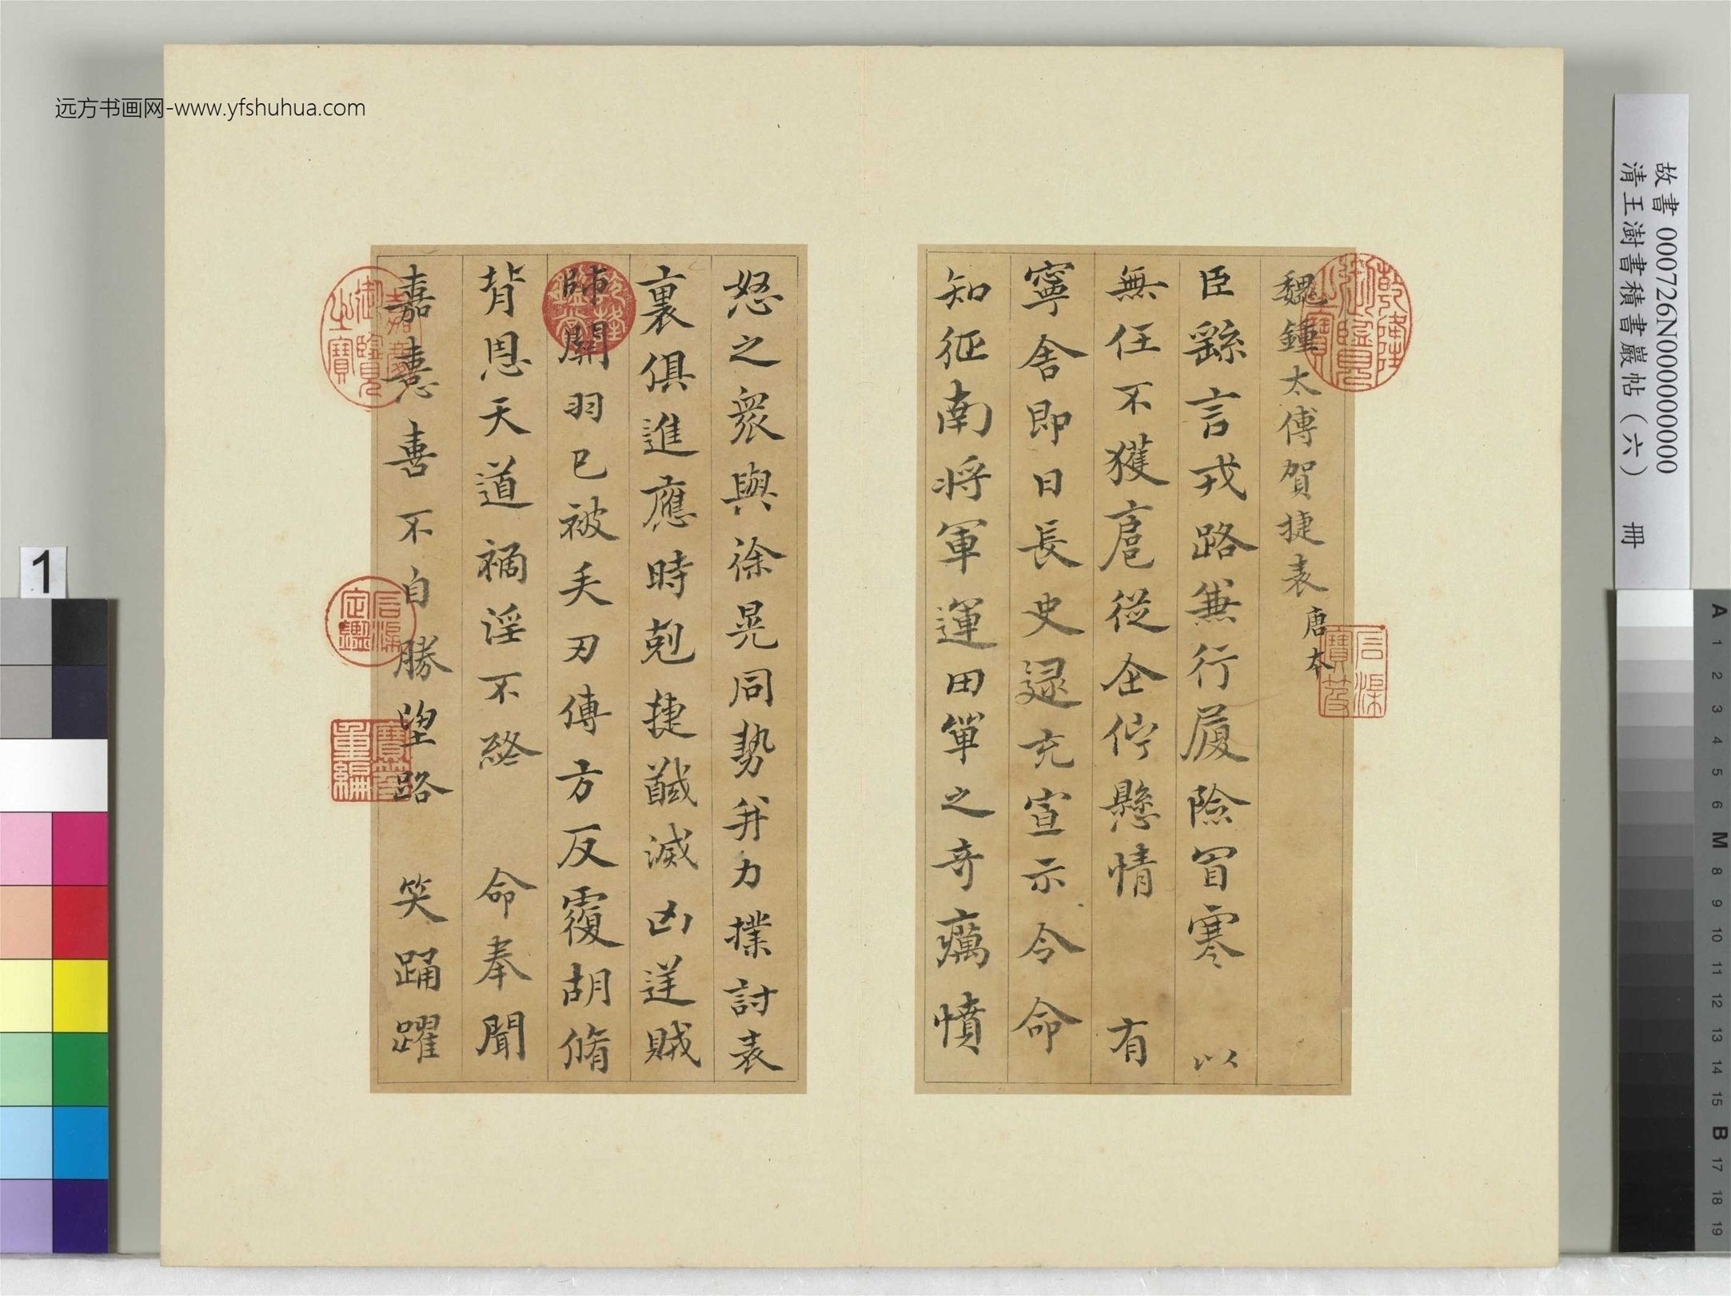 远方书画网-www.yfshuhua.com
故書 000726N000000000
清王澍書積書巖帖（六） 冊
魏鍾太傅賀捷表 唐本
臣繇言戎路兼行履險冒寒 以
無任不獲扈從企佇懸情 有
寧舍即日長史逯充宣示令命
知征南將軍運田單之奇癘憤
怒之眾與徐晃同勢并力撲討表
裏俱進應時剋捷馘滅凶逆賊
帥關羽已被矢刃傅方反覆胡脩
背恩天道禍淫不終 命奉聞
嘉憙喜不自勝望路 笑踊躍
乾隆御覽之寶
石渠寶笈
乾隆鑑賞
嘉慶御覽之寶
石渠定鑑
寶笈重編
1
A
1
2
3
4
5
6
M
8
9
10
11
12
13
14
15
B
17
18
19